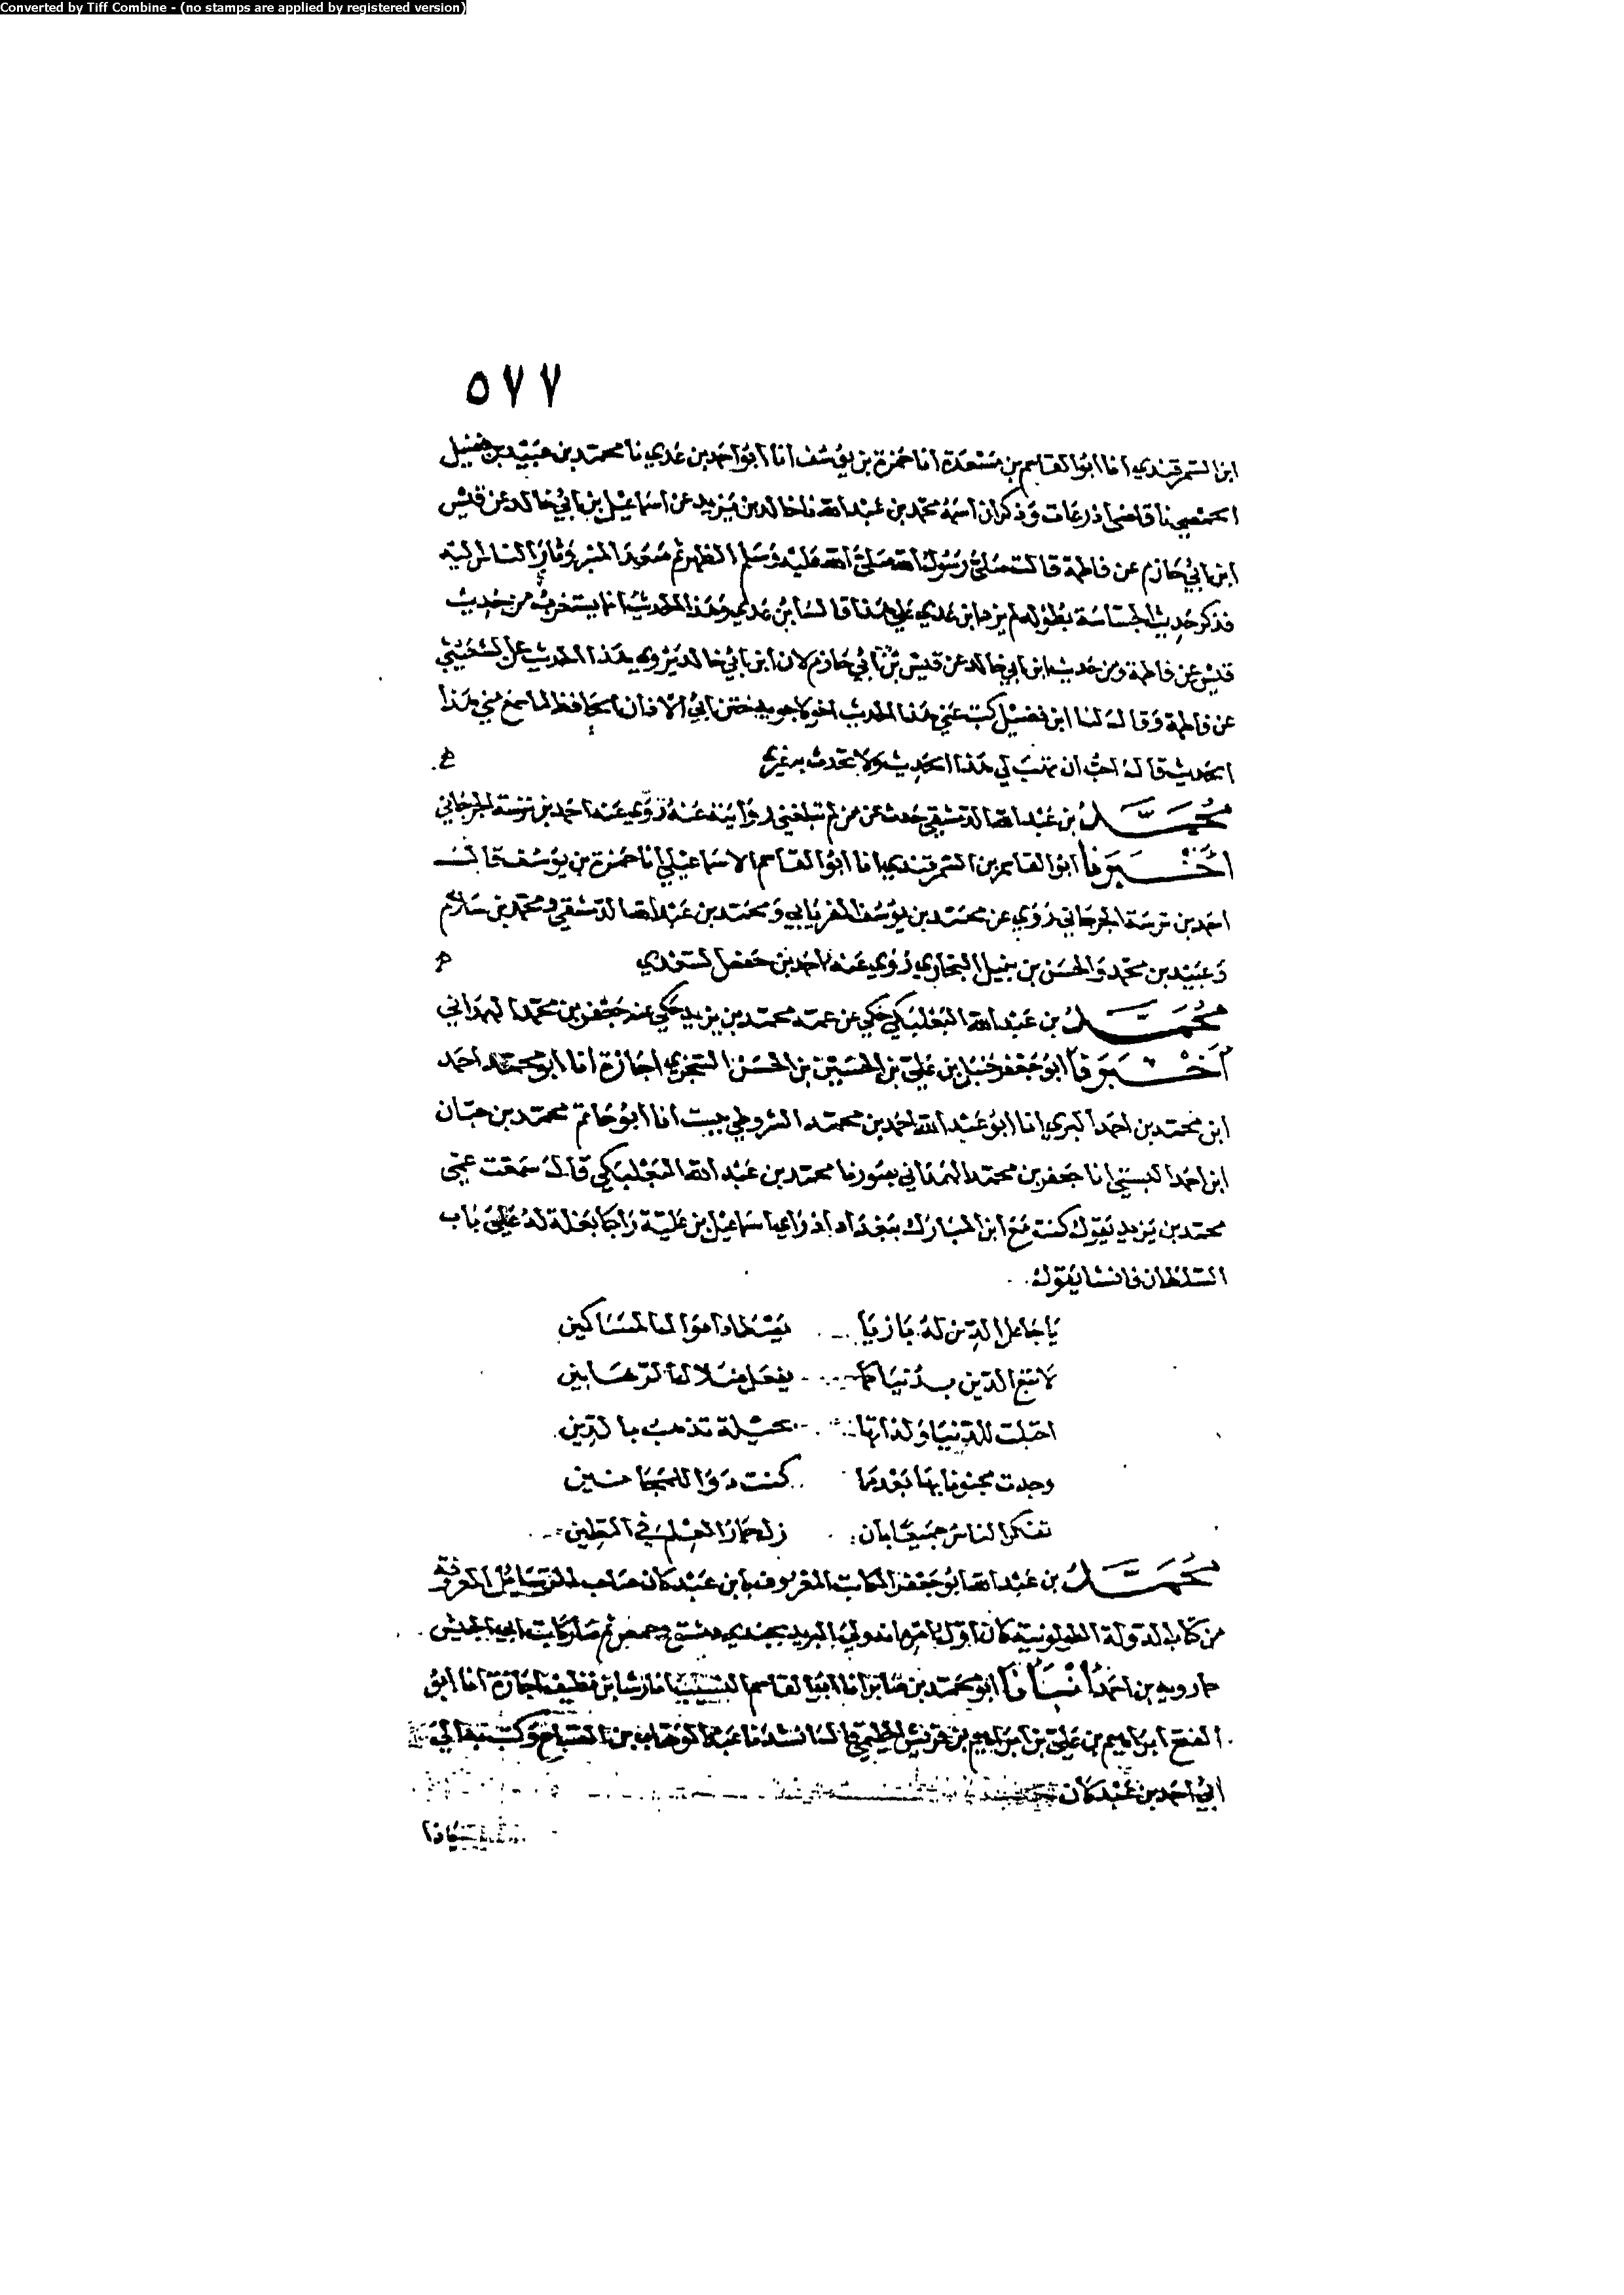 Converted by Tiff Combine - (no stamps are applied by registered version)
٥٧٧
ابن السمرقندي انا ابو القاسم بن مسعدة انا حمزة بن يوسف انا ابو احمد بن عدي نا محمد بن عبيد بن فضيل
الحمصي نا قاضي اذرعات وذكر ان اسمه محمد بن عبد الله نا خالد بن يزيد عن اسماعيل بن ابي خالد عن قيس
ابن ابي حازم عن فاطمة قالت صلى رسول الله صلى الله عليه وسلم الظهر ثم صعد المنبر وثار الناس اليه
فذكر حديث الجساسة بطوله لم يزد ابن عدي على هذا قال لنا ابن عدي وهذا الحديث انما يستغرب من حديث
قيس عن فاطمة ومن حديث ابن ابي خالد عن قيس بن ابي حازم لان ابن ابي خالد يروي هذا الحديث عن الشعبي
عن فاطمة وقال لنا ابن فضيل كتب عني هذا الحديث ختن ابي الاذان الحافظ لما سمع مني هذا
الحديث قال احب ان تهب لي هذا الحديث ولا تحدث به غيري
محمد بن عبد الله الدمشقي حدث عن من لم تبلغني روايته عنه روى عنه احمد بن ترسة الجرجاني
اخبرنا ابو القاسم بن السمرقندي انا ابو القاسم الاسماعيلي انا حمزة بن يوسف قال
احمد بن ترسة الجرجاني روى عن محمد بن يوسف الفريابي ومحمد بن عبد الله الدمشقي ومحمد بن سلام
وعبيد بن محمد والحسن بن جميل البخاري روى عنه احمد بن حفص السعدي
محمد بن عبد الله البعلبكي حكى عن عمه محمد بن يزيد حكى عنه جعفر بن محمد الهمداني
اخبرنا ابو جعفر حنبل بن علي بن الحسين بن الحسن السجزي اجازة انا ابو محمد احمد
ابن محمد بن احمد انا ابو عبد الله احمد بن محمد الشروطي ببست انا ابو حاتم محمد بن حبان
ابن احمد البستي انا جعفر بن محمد الهمداني بصور نا محمد بن عبد الله البعلبكي قال سمعت عمي
محمد بن يزيد يقول كنت مع ابن المبارك ببغداد اذ راى اسماعيل بن علية راكبا بغلة له على باب
السلطان فانشا يقول
يا جاعل الدين له بازيا يصطاد اموال المساكين
لا تبع الدين بدنيا كما يفعل ضلال الرهابين
احتلت للدنيا ولذاتها بحيلة تذهب بالدين
وجدت مجنونا بها بعدما كنت دوا للمجانين
تفكر الناس جميعا بان زل حمار العلم في الطين
محمد بن عبد الله ابو جعفر الكاتب المعروف بابن عبدكان صاحب الرسائل المعروفة
من كتاب الدولة الطولونية كان اول امره انه ولي البريد بجندي دمشق وحمص ثم صار كاتب ابي الجيش
خمارويه بن احمد انبانا ابو محمد بن صابر انا ابو القاسم النسيب انا رشا بن نظيف اجازة انا ابو
الفتح ابراهيم بن علي بن ابراهيم بن قال انشدنا عبد الوهاب بن الصباح وكتب بها الى
ابي احمد بن عبدكان